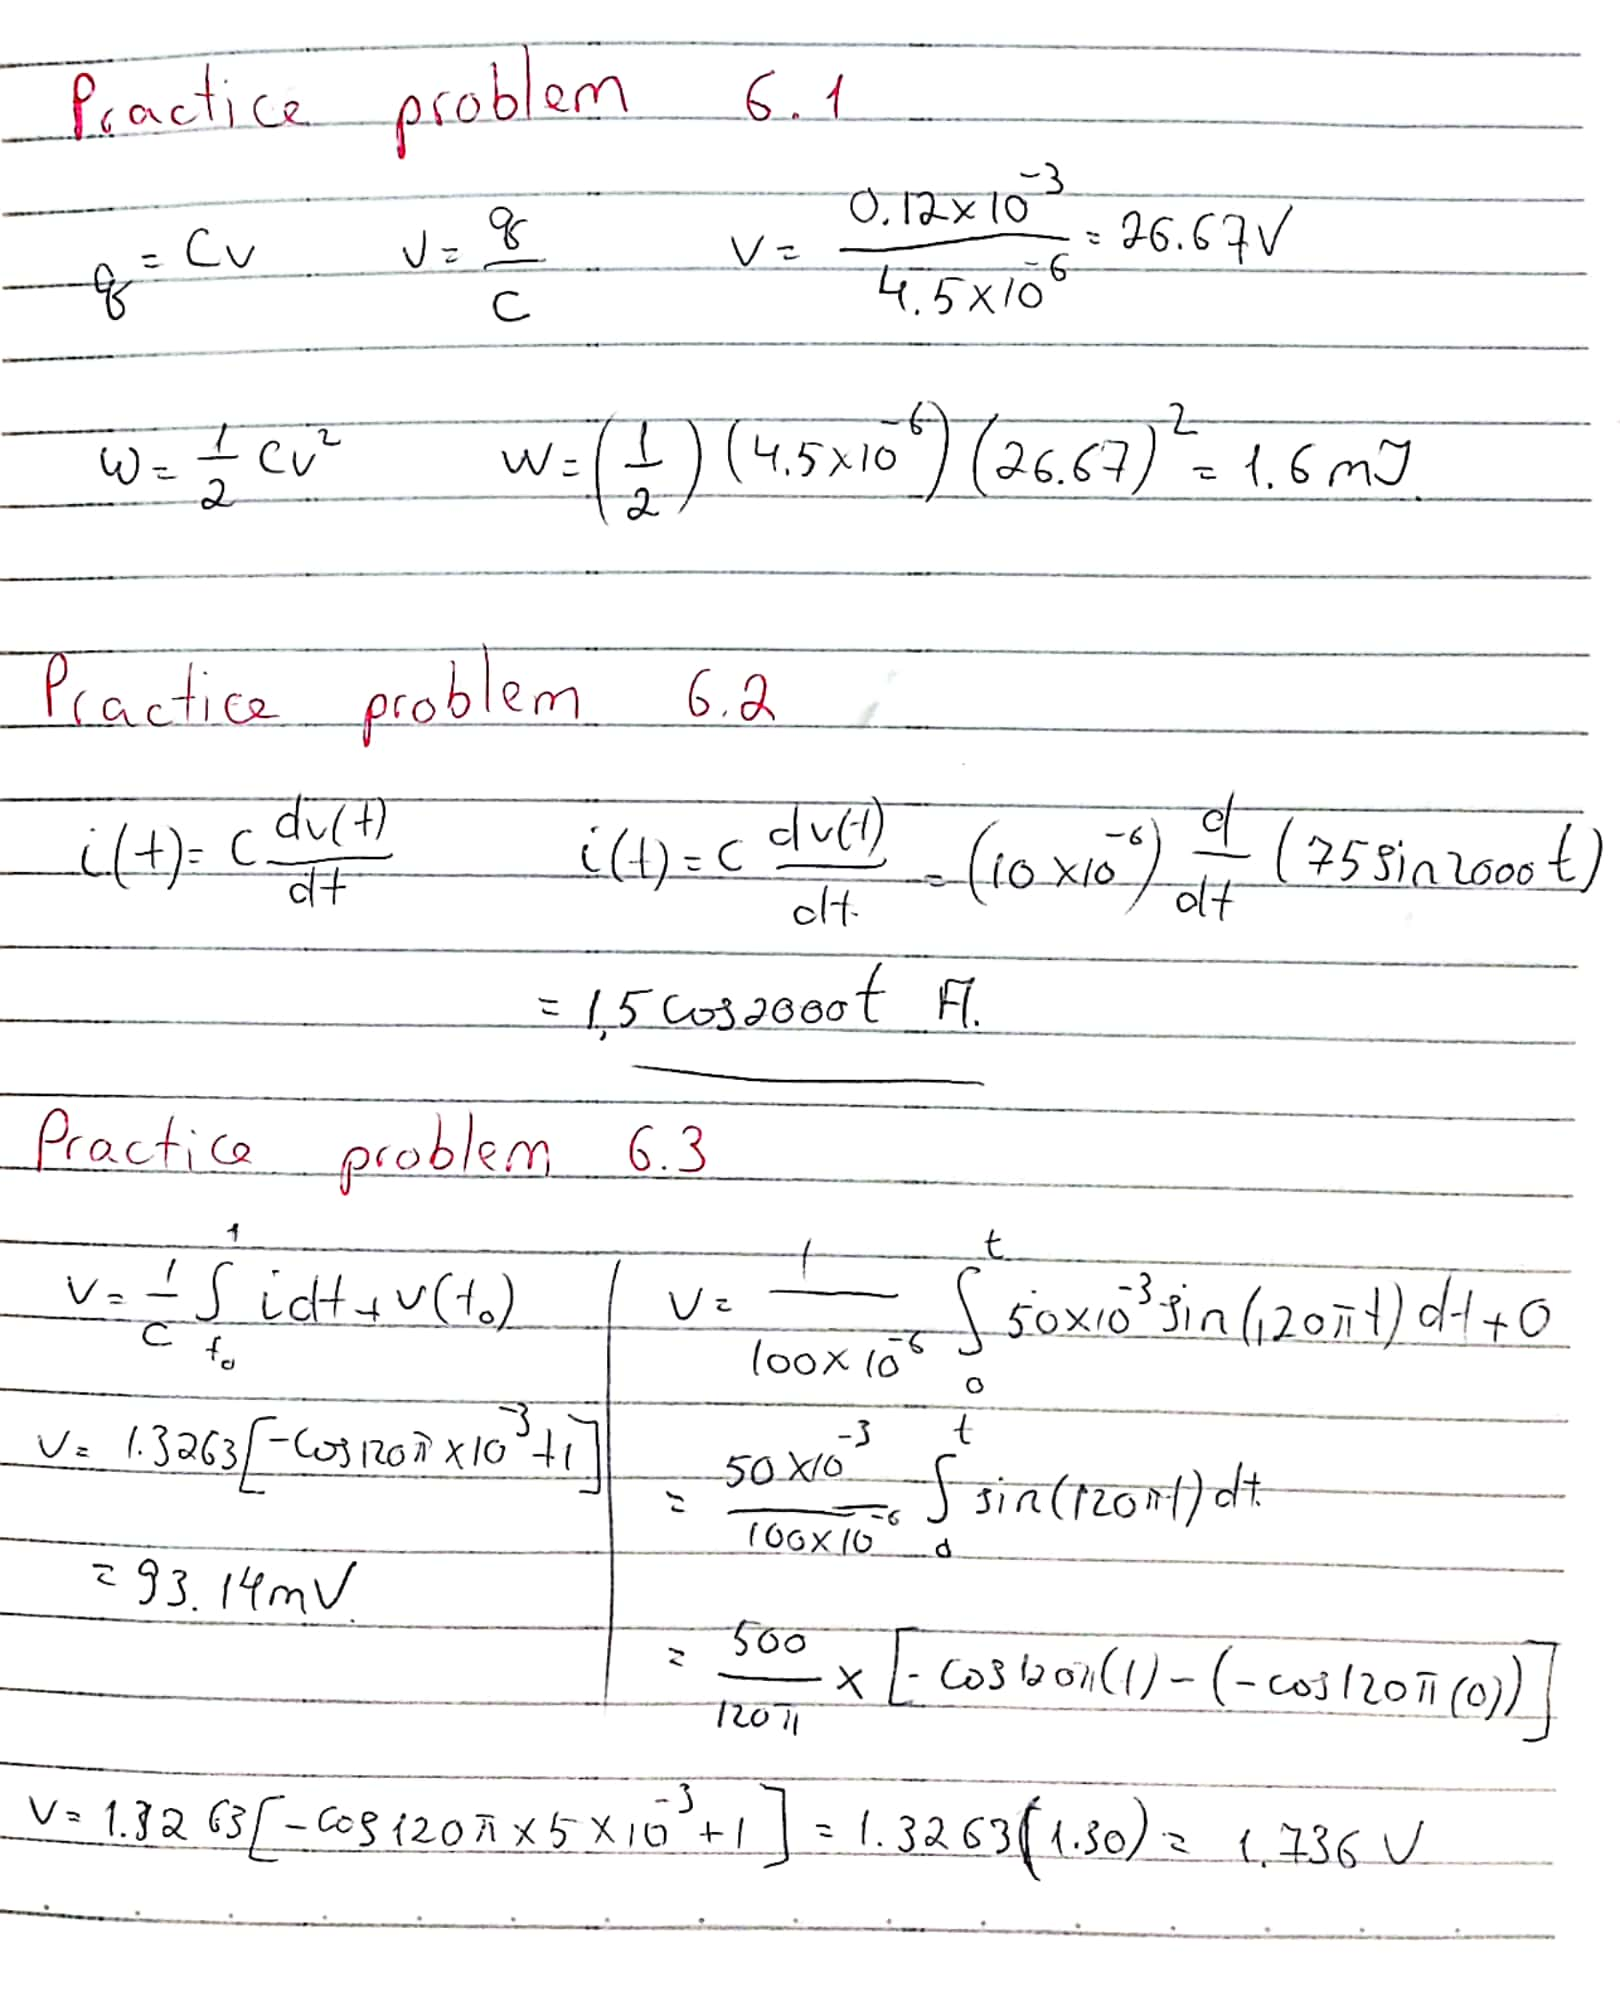 Practice problem 6.1
q = Cv   v = q/C   v = 0.12×10^-3 / 4.5×10^-6 = 26.67V
w = 1/2 Cv^2   w = (1/2) (4.5×10^-6) (26.67)^2 = 1.6 mJ.
Practice problem 6.2
i(t) = C dv(t)/dt   i(t) = C dv(t)/dt = (10×10^-6) d/dt (75 sin 2000 t)
= 1,5 cos 2000 t A.
Practice problem 6.3
v = 1/C ∫_{t0}^{1} idt + v(t0)   v = 1/100×10^-6 ∫_0^t 50×10^-3 sin(120πt) dt + 0
v = 1.3263 [-cos 120π × 10^-3 + 1]   = 50×10^-3 / 100×10^-6 ∫_0^t sin(120πt) dt.
= 93.14 mV.
= 500/120π × [- cos 120π(1) - (-cos 120π (0))]
v = 1.3263 [-cos 120π × 5 × 10^-3 + 1] = 1.3263 (1.30) = 1.736 V